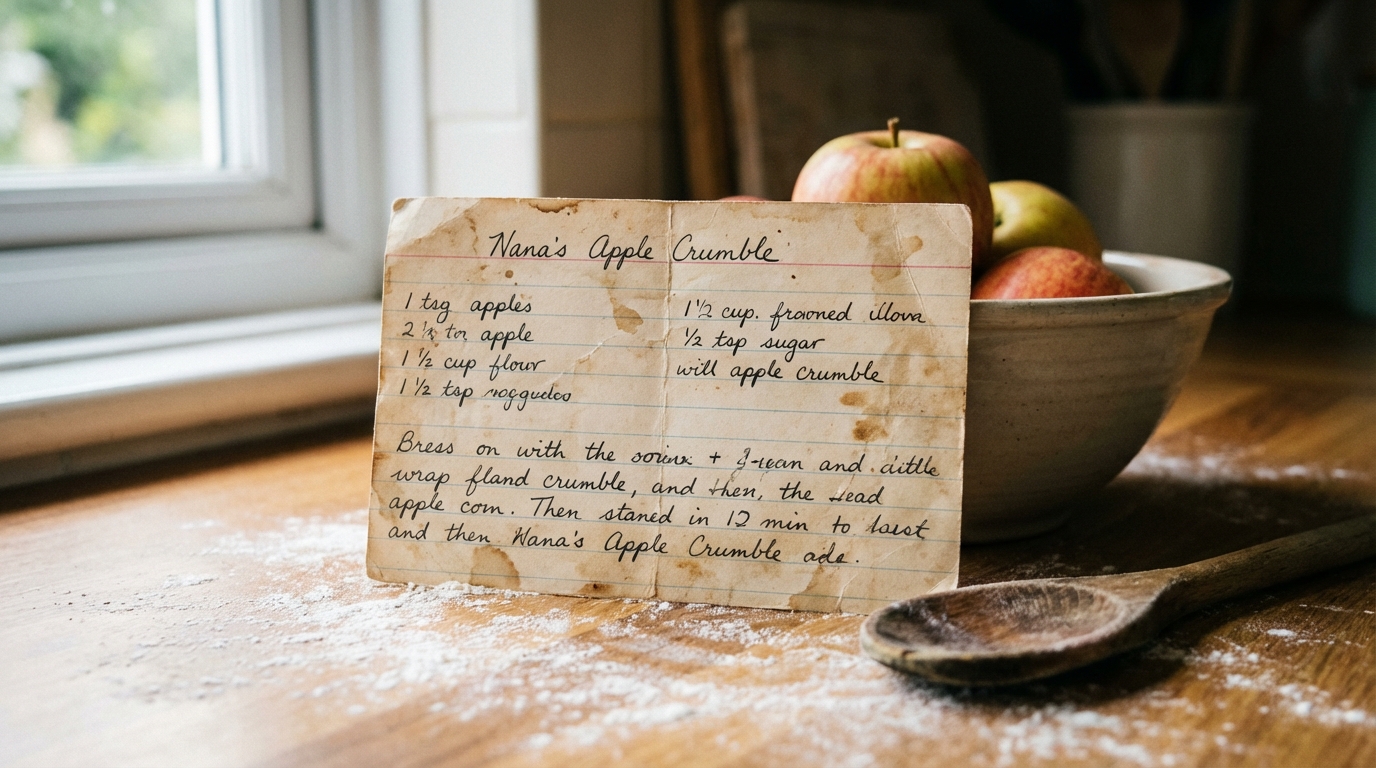 Nana's Apple Crumble
1 tsg apples
2 apple
1 ½ cup flour
1 ½ tsp
1 ½ cup. illova
½ tsp sugar
will apple crumble
Bress on with the + and
wrap fland crumble, and then, the
apple com. Then staned in 12 min to
and then Nana's Apple Crumble ade.